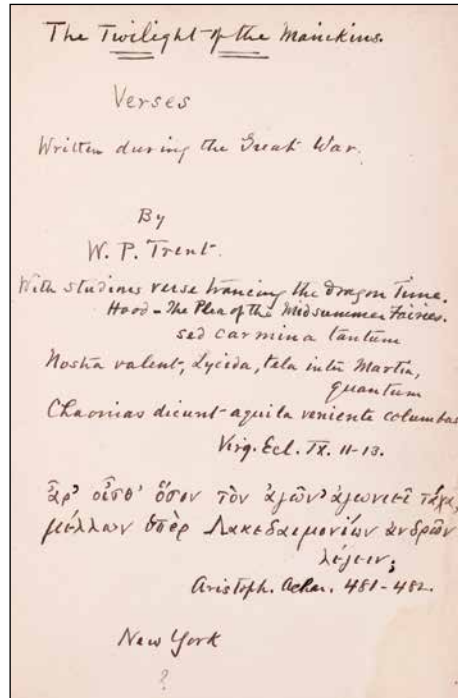 The Twilight of the Manikins.
Verses
Written during the Great War.
By
W. P. Trent.
With studious verse trancing the dragon Time.
Hood – The Plea of the Midsummer Fairies.
sed carmina tantum
Nostra valent, Lycida, tela inter Martia,
quantum
Chaonias dicunt aquila veniente columbas
Virg. Ecl. IX. 11-13.
ἆρ' οἶσθ' ὅσον τὸν ἀγῶν' ἀγωνιεῖ τάχα,
μέλλων ὑπὲρ Λακεδαιμονίων ἀνδρῶν
λέγειν;
Aristoph. Achar. 481-482.
New York
?